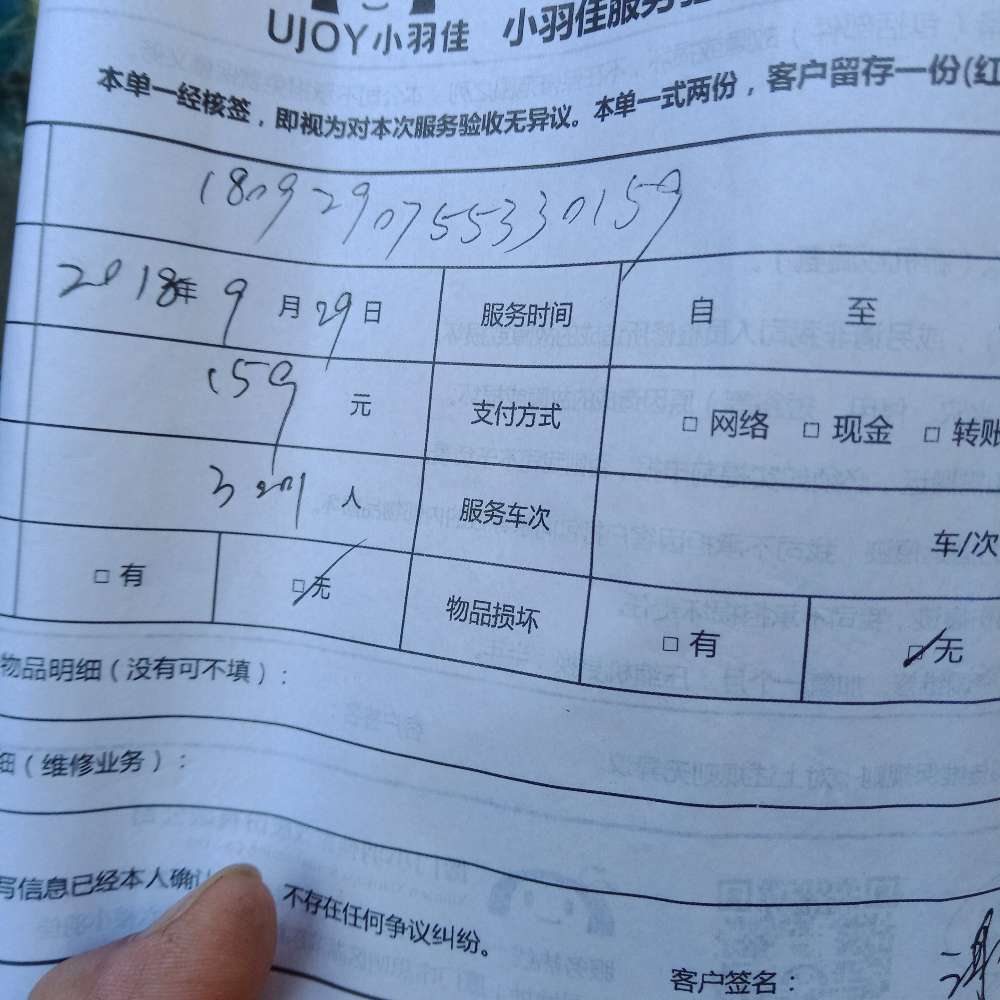 UJOY小羽佳 小羽佳服务验
本单一经核签，即视为对本次服务验收无异议。本单一式两份，客户留存一份(红
1809290755330159
2018年9月29日 服务时间 自 至
159元 支付方式 □ 网络 □ 现金 □ 转账
3 人 服务车次 车/次
□ 有 □ 无 物品损坏 □ 有 □ 无
物品明细（没有可不填）：
细（维修业务）：
写信息已经本人确认 不存在任何争议纠纷。
客户签名：